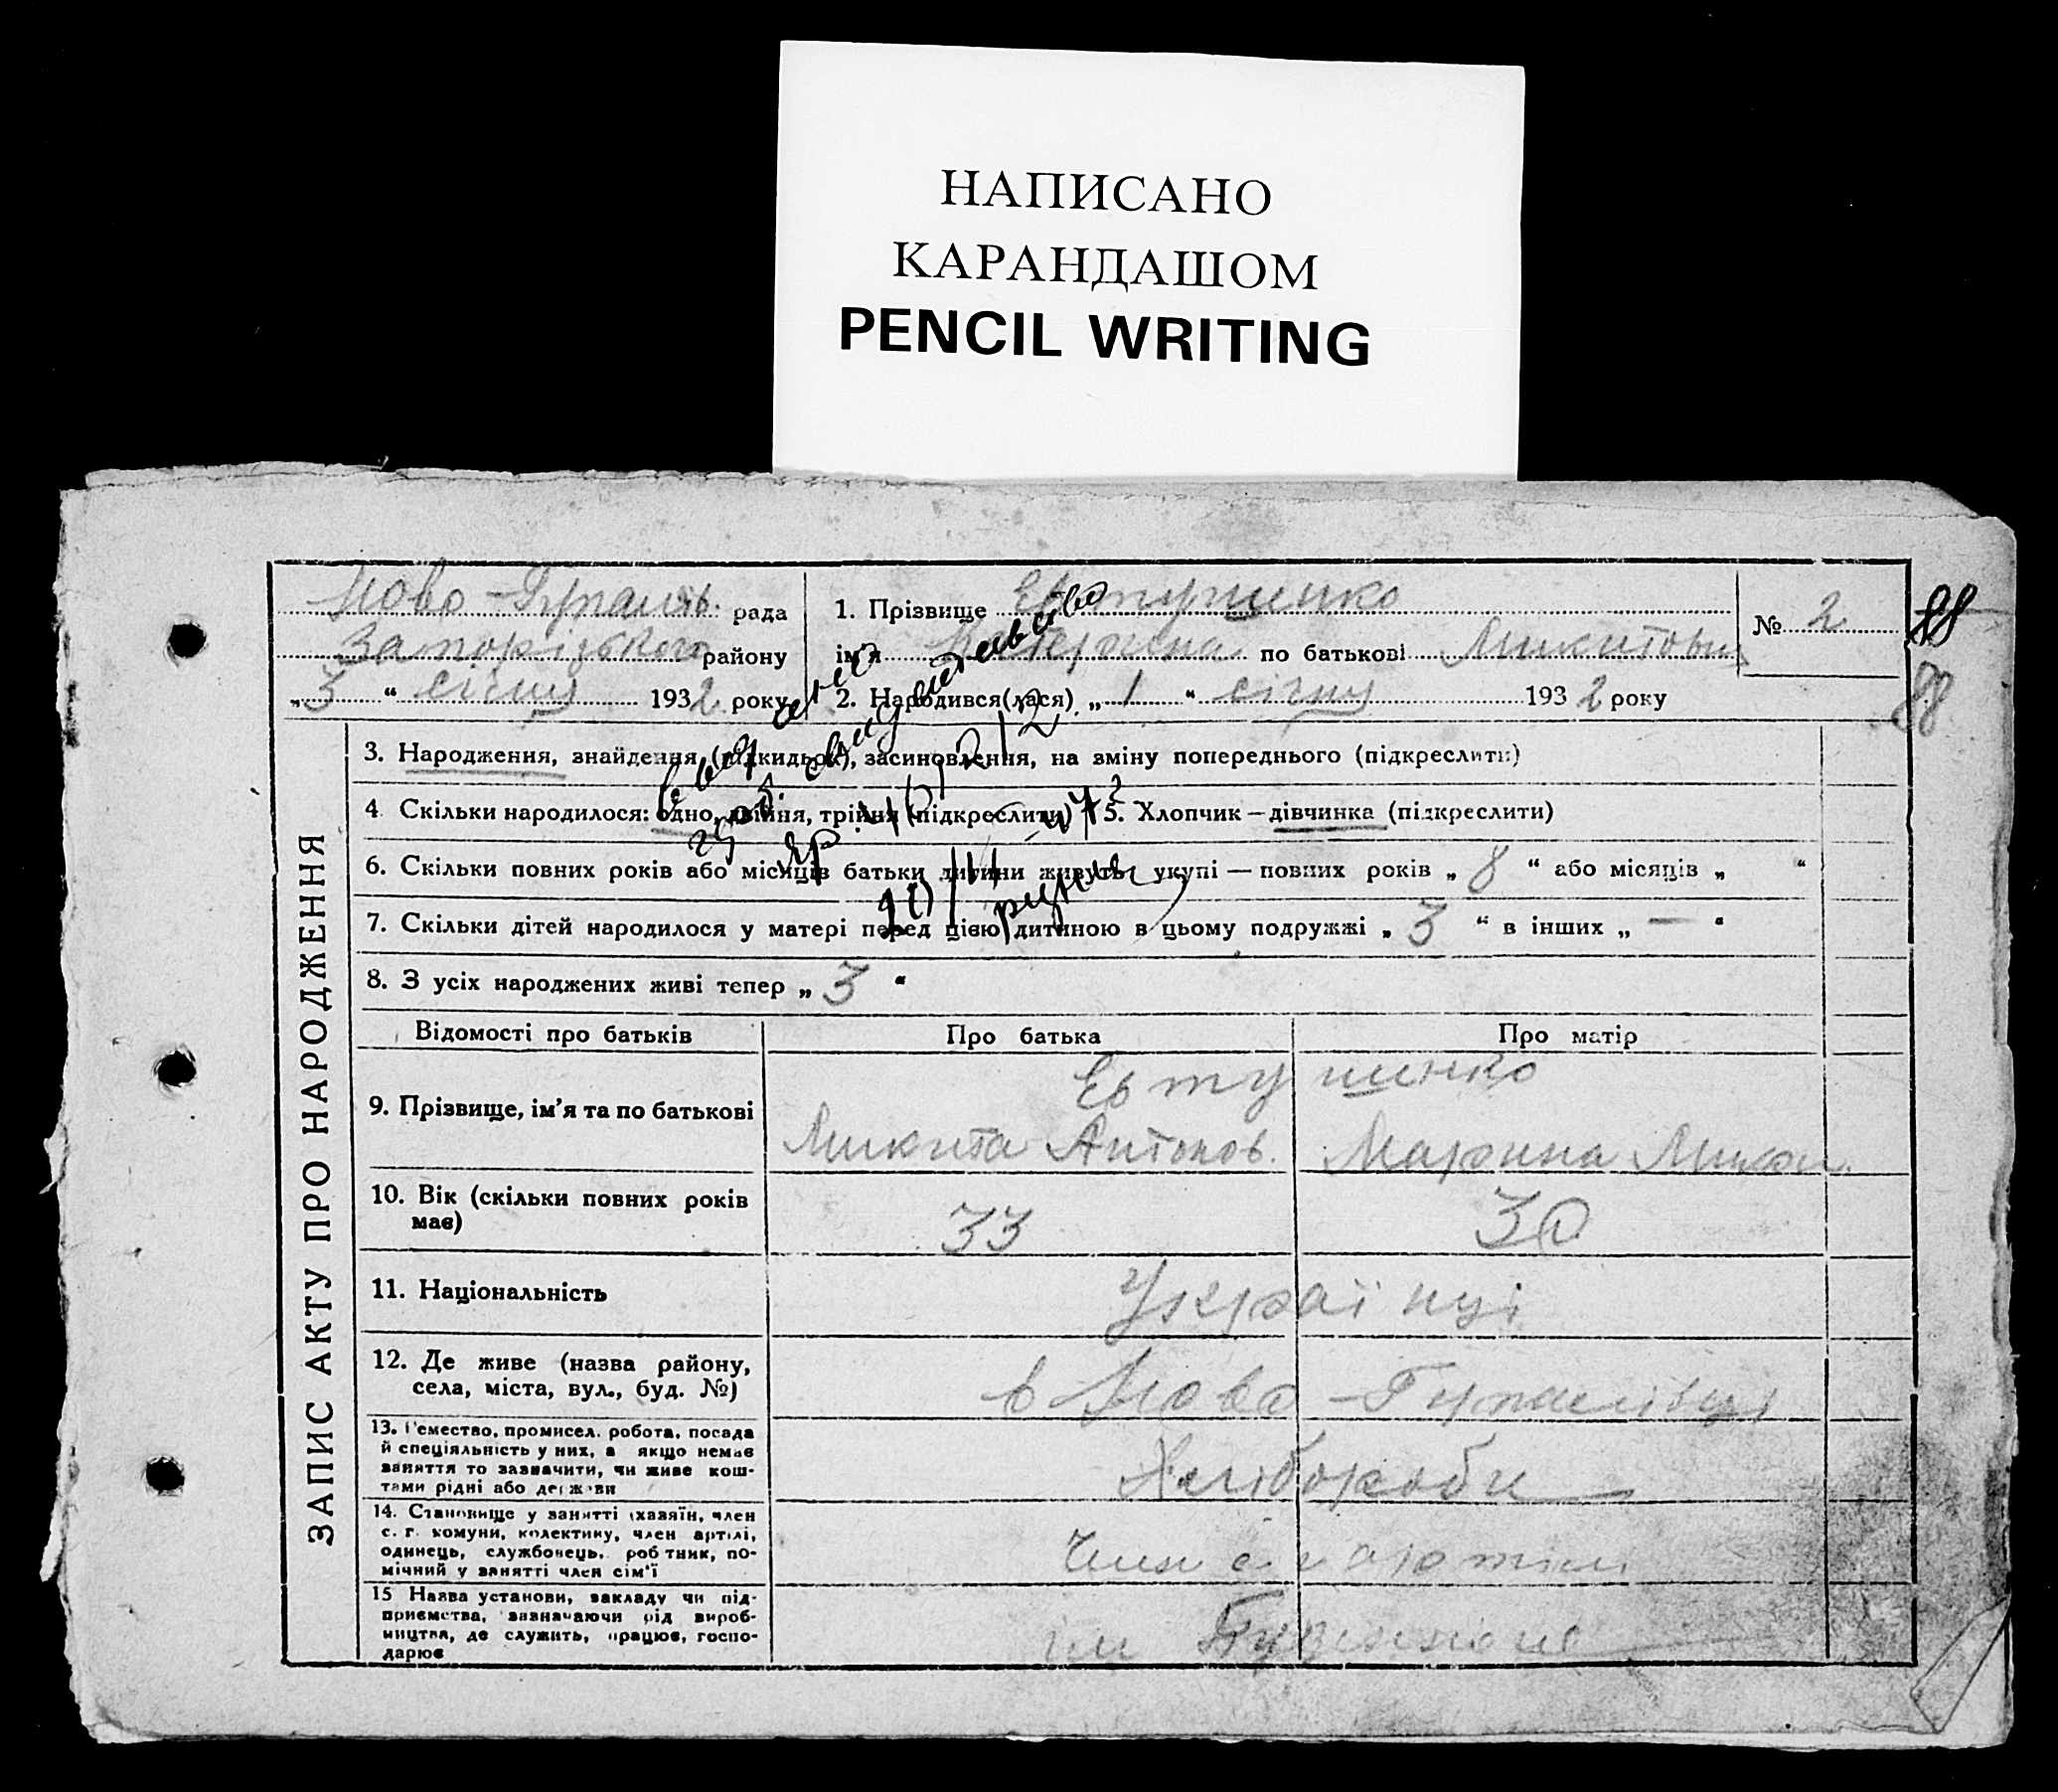 НАПИСАНО
КАРАНДАШОМ
PENCIL WRITING
рада
Запоріжського району
„ 3 “ січня 1932 року
1. Прізвище Евтушенко
ім'я Катерина по батькові Микитовн
2. Народився(лася) „ 1 “ січня 1932 року
№ 2
88
98
ЗАПИС АКТУ ПРО НАРОДЖЕННЯ
3. Народження, знайдення (підкидьок), засиновлення, на зміну попереднього (підкреслити)
4 Скільки народилося: одно, двійня, трійня (підкреслити) 5. Хлопчик – дівчинка (підкреслити)
6. Скільки повних років або місяців батьки дитини живуть укупі — повних років „ 8 “ або місяців „ “
7. Скільки дітей народилося у матері перед цією дитиною в цьому подружжі „ 3 “ в інших „ — “
8. З усіх народжених живі тепер „ 3 “
Відомості про батьків Про батька Про матір
9. Прізвище, ім'я та по батькові
Евтушинко
Микита Антонов. Марина
10. Вік (скільки повних років
має)
33 30
11. Національність Українці
12. Де живе (назва району,
села, міста, вул., буд. №)
в Ново-
13. Ремество, промисел. робота, посада
й спеціяльність у них, а якщо немає
заняття то зазначити, чи живе кош-
тами рідні або держави
Хлібороби
14. Становище у занятті (хазяїн, член
с. г. комуни, колективу, член артілі,
одинець, службовець, робітник, по-
мічний у занятті член сім'ї
Член с. г. артіли
15 Назва установи, закладу чи під-
приємства, зазначаючи рід вироб-
ництва, де служить, працює, госпо-
дарює
ім Будьонного